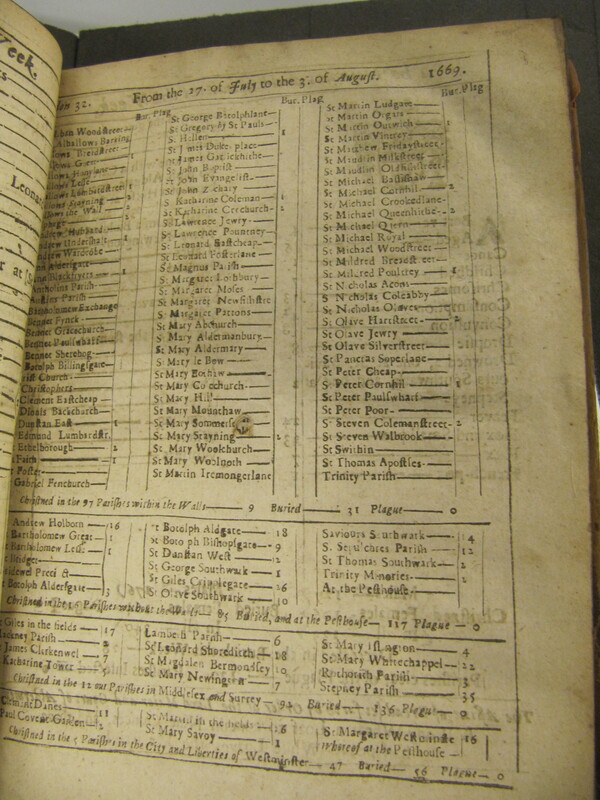 From the 27. of July to the 3. of August. 1669.
Bur. Plag
Woodstreet
Alhallows Barking
Breadstreet
Lumbardstreet 1
Stayning 2
the Wall
Hubbard
Undershaft 1
Wardrobe
Aldersgate
Blackfryers 1
Parish
Parish
Bartholomew Exchange
Bennet Fynck
Bennet Gracechurch
Bennet Paulswharf
Bennet Sherehog
Botolph Billingsgate
Christ Church
Christophers
Clement Eastcheap
Dionis Backchurch
Dunstan East 1
Edmund Lumbardstr.
Ethelborough 2
Faith 1
Foster
Gabriel Fenchurch
Bur. Plag
St George Botolphlane
St Gregory by St Pauls
St Hellen 1
St James Dukes place
St James Garlickhithe
St John Baptist
St John Evangelist
St John Zachary
St Katharine Coleman 1
St Katharine Creechurch 2
St Lawrence Jewry
St Lawrence Pountney
St Leonard Eastcheap
St Leonard Fosterlane
St Magnus Parish
St Margaret Lothbury
St Margaret Moses
St Margaret Newfishstre
St Margaret Pattons
St Mary Abchurch
St Mary Aldermanbury
St Mary Aldermary
St Mary le Bow
St Mary Bothaw
St Mary Colechurch
St Mary Hill
St Mary Mounthaw
St Mary Somerset
St Mary Stayning 2
St Mary Woolchurch
St Mary Woolnoth
St Martin Iremongerlane
Bur. Plag
St Martin Ludgate
St Martin Orgars
St Martin Outwich 1
St Martin Vintrey
St Matthew Fridaystreet
St Maudlin Milkstreet
St Maudlin Oldfishstreet
St Michael Bassishaw
St Michael Cornhil 2
St Michael Crookedlane
St Michael Queenhithe 2
St Michael Quern
St Michael Royal
St Michael Woodstreet
St Mildred Breadstreet
St Mildred Poultrey 1
St Nicholas Acons
St Nicholas Coleabby
St Nicholas Olaves
St Olave Hartstreet 2
St Olave Jewry
St Olave Silverstreet
St Pancras Soperlane
St Peter Cheap
St Peter Cornhil 1
St Peter Paulswharf
St Peter Poor
St Steven Colemanstreet 2
St Steven Walbrook
St Swithin
St Thomas Apostles
Trinity Parish
Christned in the 97 Parishes within the Walls 9 Buried 31 Plague 0
Andrew Holborn 16
Bartholomew Great 1
Bartholomew Less 1
Bridget
Bridewel Prect
Botolph Aldersgate 3
St Botolph Aldgate 18
St Botolph Bishopsgate 9
St Dunstan West 2
St George Southwark 1
St Giles Cripplegate 26
St Olave Southwark 10
Saviours Southwark 14
S. Sepulchres Parish 12
St Thomas Southwark 2
Trinity Minories 2
At the Pesthouse
Christned in the Parishes without the Walls 85 Buried, and at the Pesthouse 117 Plague 0
Giles in the fields 17
Hackney Parish 2
James Clarkenwel 7
Katharine Tower 5
Lambeth Parish 6
St Leonard Shoreditch 18
St Magdalen Bermondsey 10
St Mary Newington 7
St Mary Islington 4
St Mary Whitechappel 22
Rothorith Parish 3
Stepney Parish 35
Christned in the 12 out Parishes in Middlesex and Surrey 92 Buried 136 Plague 0
Clement Danes 11
Paul Covent Garden 2
St Martin in the fields 26
St Mary Savoy 1
St Margaret Westminste 16
Whereof at the Pesthouse
Christned in the 5 Parishes in the City and Liberties of Westminster 47 Buried 56 Plague 0